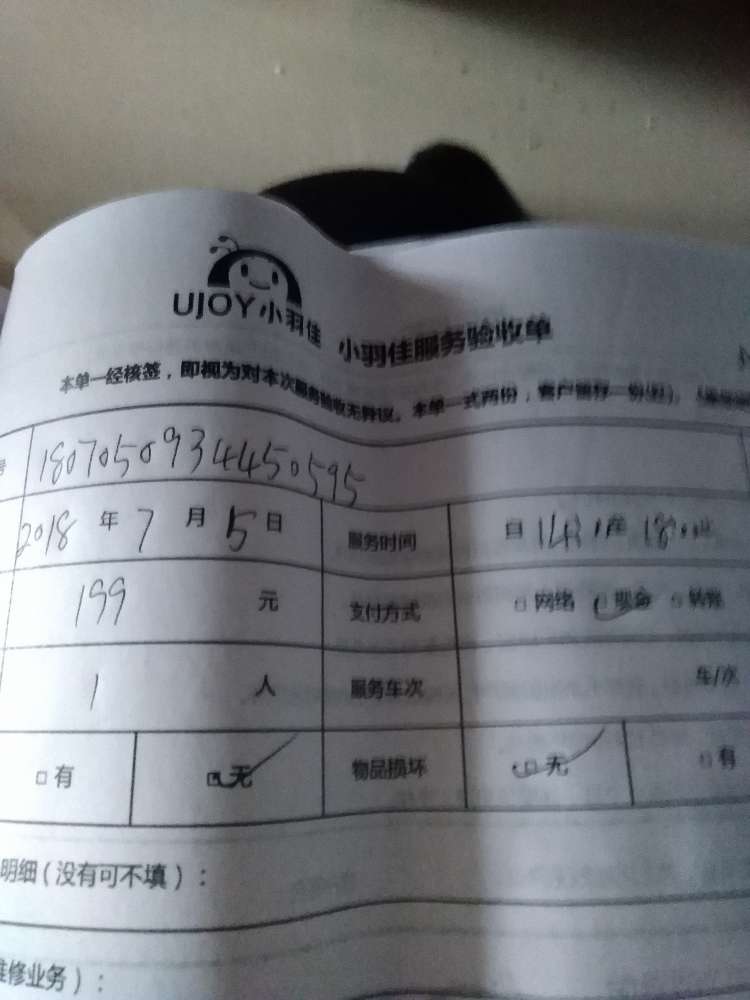 UJOY小羽佳 小羽佳服务验收单
本单一经核签，即视为对本次服务验收无异议。本单一式两份，客户留存一份
号 1807050934450595
2018 年 7 月 5 日 服务时间 自
199 元 支付方式 □ 网络 □ 现金 □ 转账
1 人 服务车次 车/次
□ 有 □ 无 物品损坏 □ 无 □ 有
明细（没有可不填）：
维修业务）：